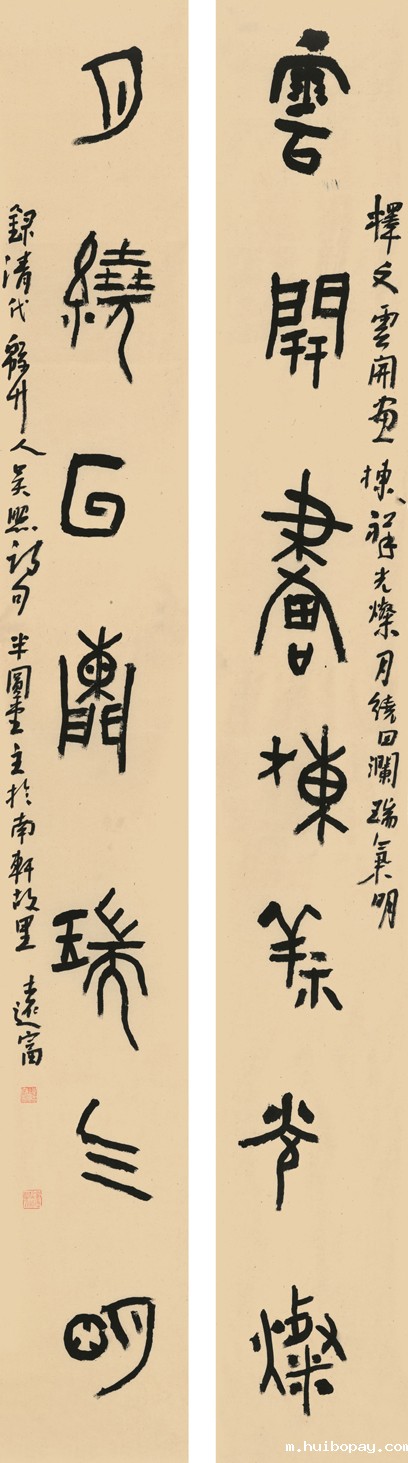 雲開畫棟祥光燦
釋文雲開画棟祥光燦月繞回瀾瑞氣明
月繞回瀾瑞气明
錄清代人吴照诗句半圖堂主於南軒故里遠富
m.huibopay.com